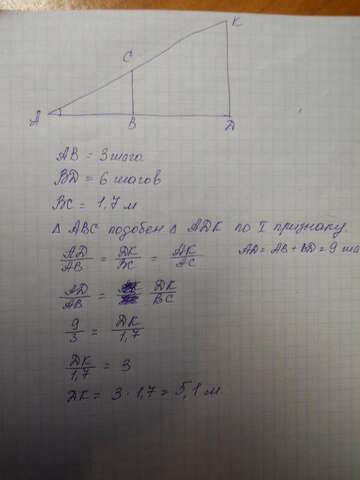 K
C
A
B
D
AB = 3 шага
BD = 6 шагов
BC = 1,7 м
Δ ABC подобен Δ ADK по I признаку.
AD/AB = DK/BC = AK/AC AD = AB + BD = 9 ша
AD/AB = DK/BC
9/3 = DK/1,7
DK/1,7 = 3
DK = 3 · 1,7 = 5,1 м.